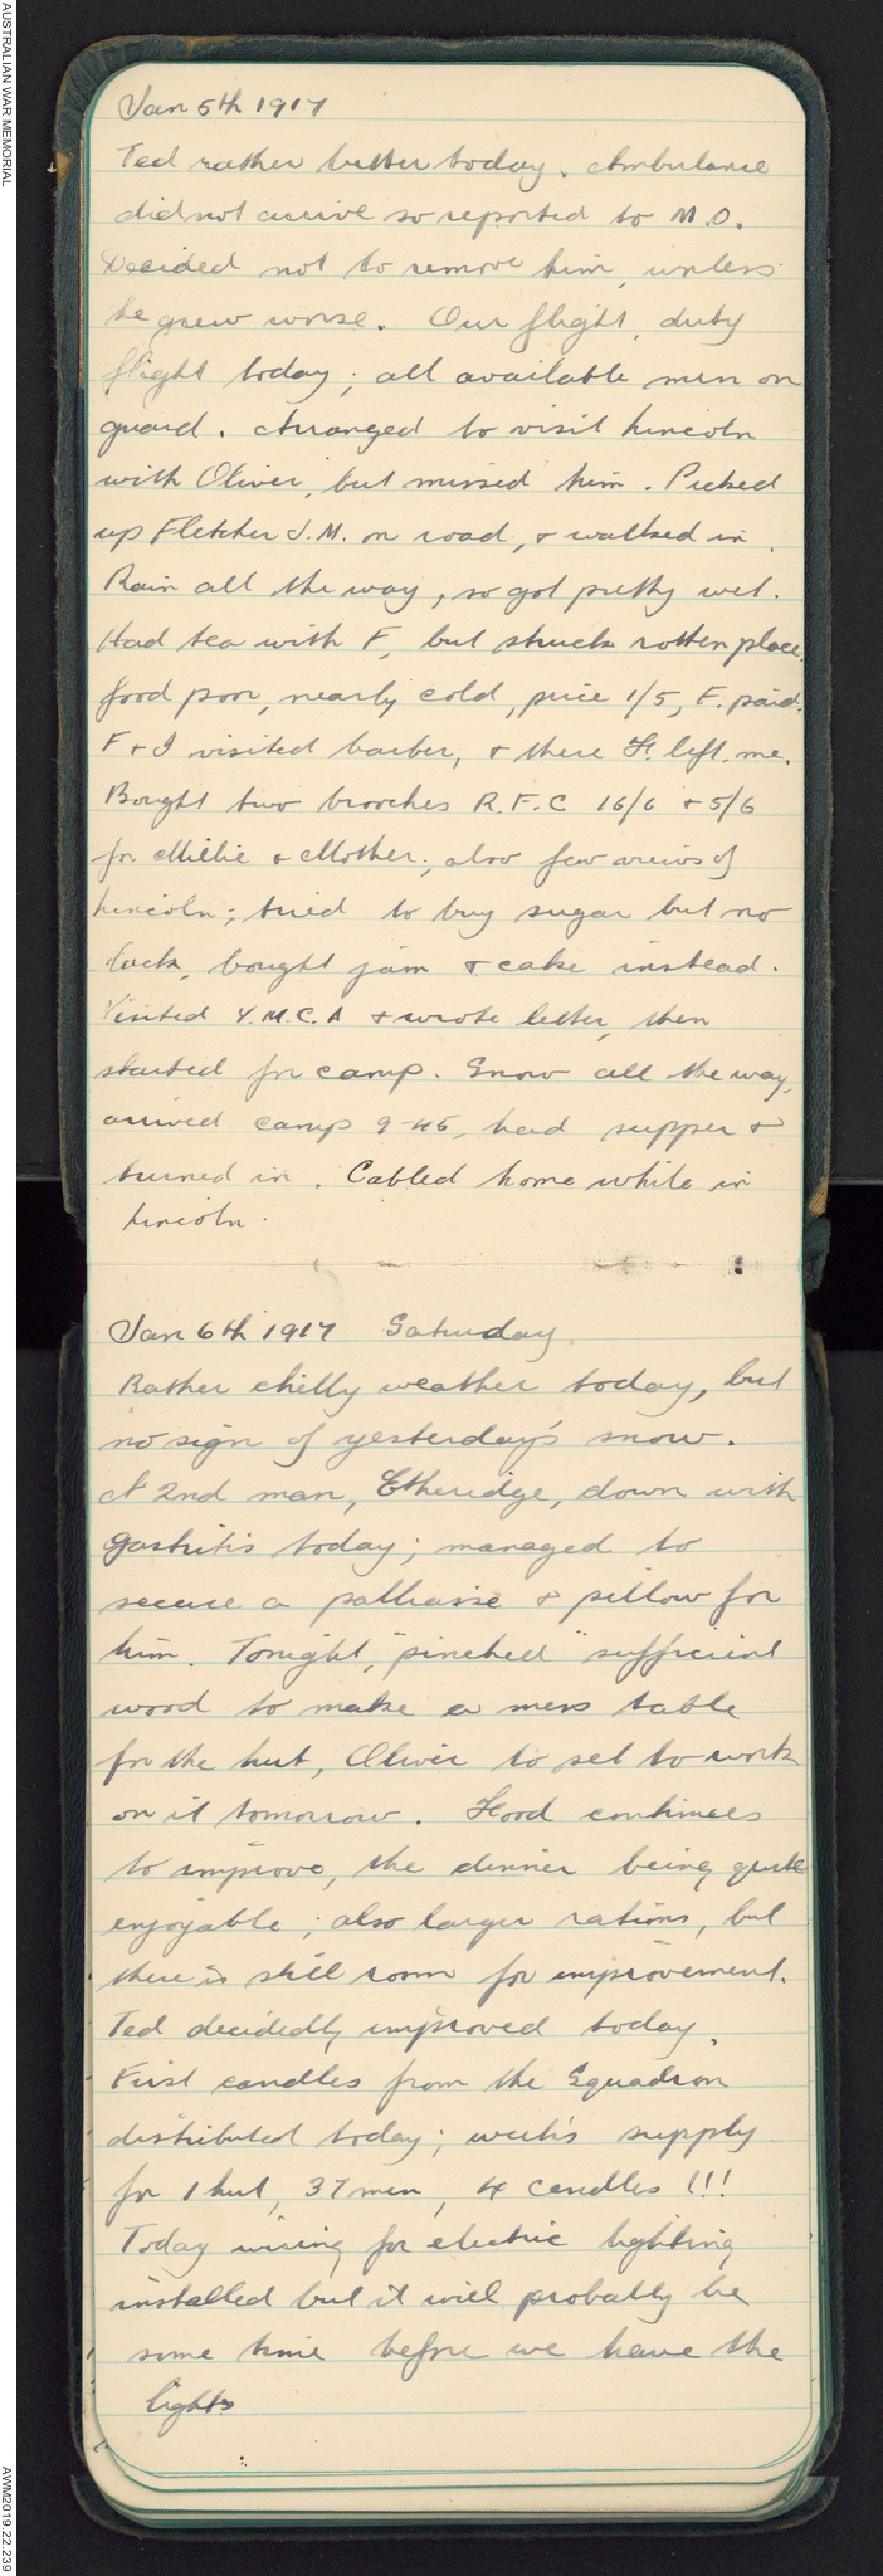 AUSTRALIAN WAR MEMORIAL
Jan 5th 1917
Ted rather better today. Ambulance
did not arrive so reported to M.O.
Decided not to remove him, unless
he grew worse. Our flight, duty
flight today; all available men on
guard. Arranged to visit Lincoln
with Oliver, but missed him. Picked
up Fletcher J.M. on road, & walked in.
Rain all the way, so got pretty wet.
Had tea with F, but struck rotten place.
food poor, nearly cold, price 1/5, F. paid.
F & I visited barber, & there F. left me.
Bought two brooches R.F.C 16/6 & 5/6
for Millie & Mother; also few views of
Lincoln; tried to buy sugar but no
luck, bought jam & cake instead.
Visited Y.M.C.A & wrote letter, then
started for camp. Snow all the way,
arrived camp 9-45, had supper &
turned in. Cabled home while in
Lincoln.
Jan 6th 1917 Saturday
Rather chilly weather today, but
no sign of yesterday's snow.
A 2nd man, Etheridge, down with
gastritis today; managed to
secure a palliasse & pillow for
him. Tonight, "pinched" sufficient
wood to make a mess table
for the hut, Oliver to set to work
on it tomorrow. Food continues
to improve, the dinner being quite
enjoyable; also larger rations, but
there is still room for improvement.
Ted decidedly improved today.
First candles from the Squadron
distributed today; week's supply
for 1 hut, 37 men, 4 candles !!!
Today wiring for electric lighting
installed but it will probably be
some time before we have the
lights
AWM2019.22.239